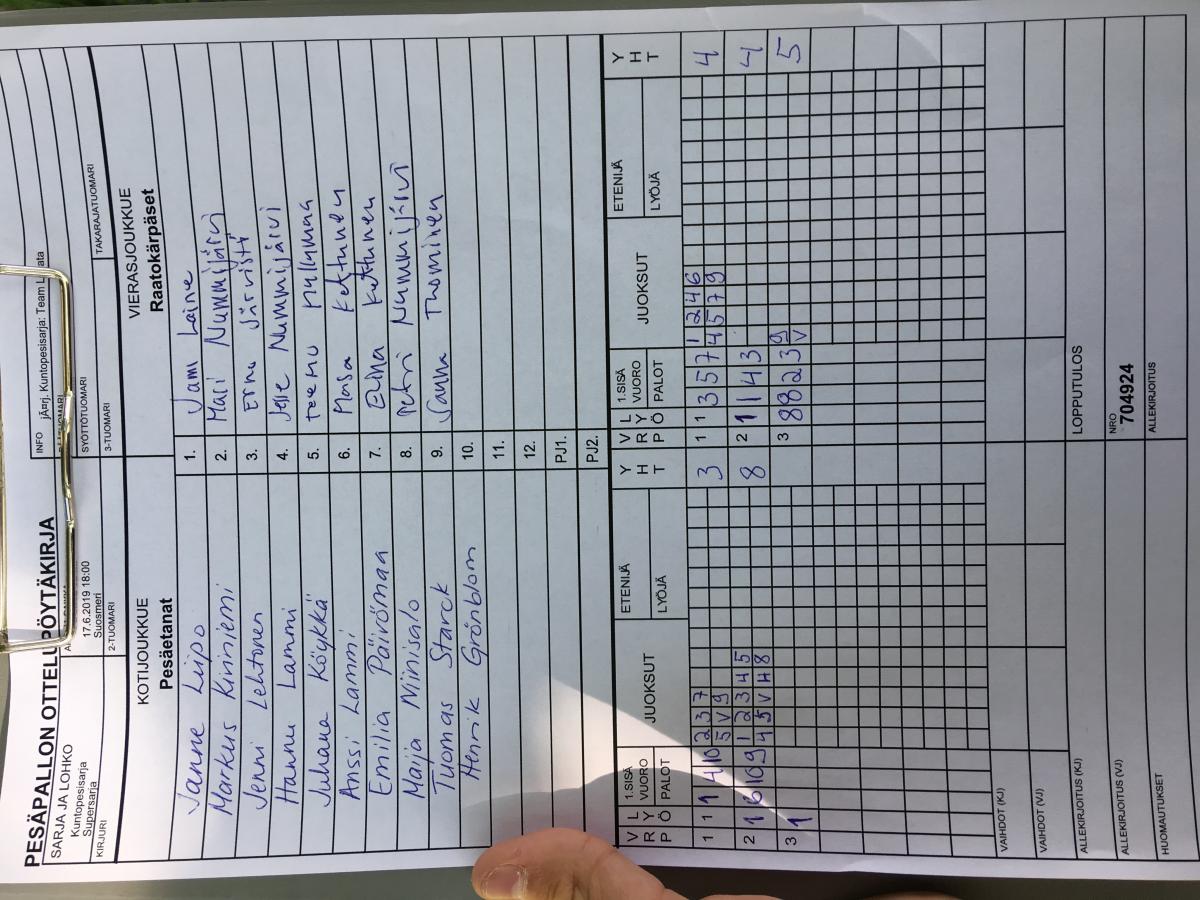 PESÄPALLON OTTELUPÖYTÄKIRJA
SARJA JA LOHKO
Kuntopesisarja
Supersarja
KIRJURI
17.6.2019 18:00
Suosmeri
2-TUOMARI
INFO jÃ¤rj. Kuntopesisarja: Team L
SYÖTTÖTUOMARI
3-TUOMARI
TAKARAJATUOMARI
KOTIJOUKKUE
Pesäetanat
VIERASJOUKKUE
Raatokärpäset
Janne Liipo 1. Jami Laine
Markus Kiviniemi 2. Mari Nummijärvi
Jenni Lehtonen 3. Erno Järvistö
Hannu Lammi 4. Nummijärvi
Juhana Köykkä 5. Teemu
Anssi Lammi 6. Masa Kettunen
Emilia Päivömaa 7. Elina Kettunen
Maija Miinisalo 8. Petri Nummijärvi
Tuomas Starck 9. Sanna Thominen
Henrik Grönblom 10.
11.
12.
PJ1.
PJ2.
V L 1.SISÄ JUOKSUT ETENIJÄ Y V L 1.SISÄ JUOKSUT ETENIJÄ Y
R Y VUORO H R Y VUORO H
P Ö PALOT LYÖJÄ T P Ö PALOT LYÖJÄ T
1 1 1 4 10 2 3 7 3 1 1 3 5 7 1 2 4 6 4
5 V 9 4 5 7 9
2 1 6 10 9 1 2 3 4 5 8 2 1 1 4 3 4
4 5 V H 8
3 1 3 8 8 2 3 9 5
V
VAIHDOT (KJ)
VAIHDOT (VJ)
ALLEKIRJOITUS (KJ) LOPPUTULOS
ALLEKIRJOITUS (VJ) NRO
704924
HUOMAUTUKSET ALLEKIRJOITUS